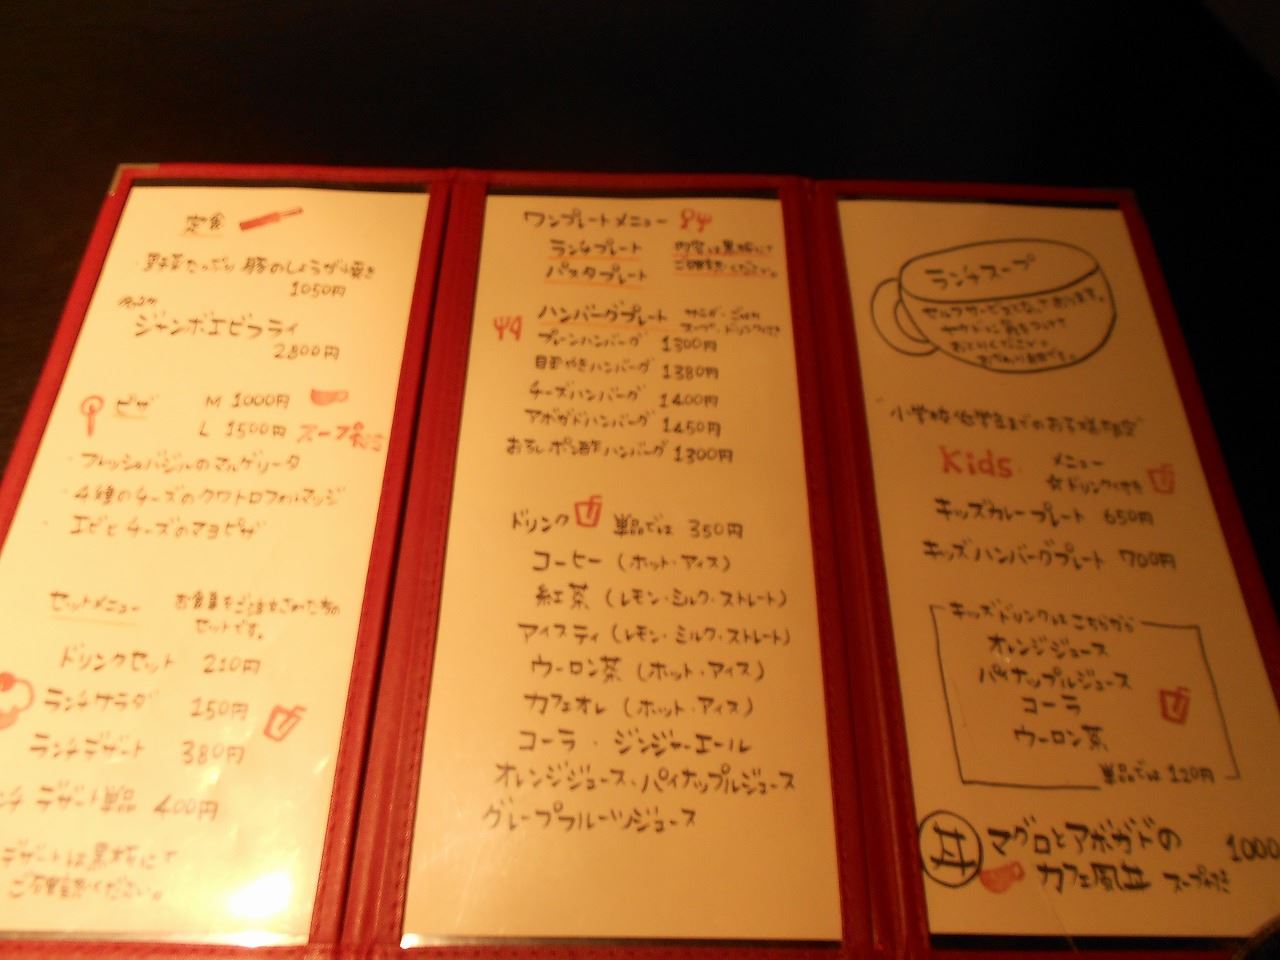 定食
野菜たっぷり 豚のしょうが焼き
1050円
ジャンボエビフライ
2800円
ピザ M 1000円
L 1500円 スープ付き
・フレッシュバジルのマルゲリータ
・4種のチーズのクワトロフォルマッジ
・エビとチーズのマヨピザ
セットメニュー お食事をご注文された方の
セットです。
ドリンクセット 210円
ランチサラダ 150円
ランチデザート 380円
デザート単品 400円
デザートは黒板にて
ご確認ください。
ワンプレートメニュー
ランチプレート 内容は黒板にて
パスタプレート ご確認ください。
ハンバーグプレート サラダ・ごはん
スープ・ドリンク付き
プレーンハンバーグ 1300円
目玉やきハンバーグ 1380円
チーズハンバーグ 1400円
アボガドハンバーグ 1450円
おろしポン酢ハンバーグ 1300円
ドリンク 単品では 350円
コーヒー (ホット・アイス)
紅茶 (レモン・ミルク・ストレート)
アイスティ (レモン・ミルク・ストレート)
ウーロン茶 (ホット・アイス)
カフェオレ (ホット・アイス)
コーラ・ジンジャーエール
オレンジジュース・パイナップルジュース
グレープフルーツジュース
ランチスープ
セルフサービスとなっております。
ヤケドに気をつけて
おとりください。
おかわり自由です。
小学校低学年までのお子様限定
Kids メニュー
☆ドリンク付き
キッズカレープレート 650円
キッズハンバーグプレート 700円
キッズドリンクはこちらから
オレンジジュース
パイナップルジュース
コーラ
ウーロン茶
単品では 120円
丼 マグロとアボガドの 1000
カフェ風丼 スープ付き